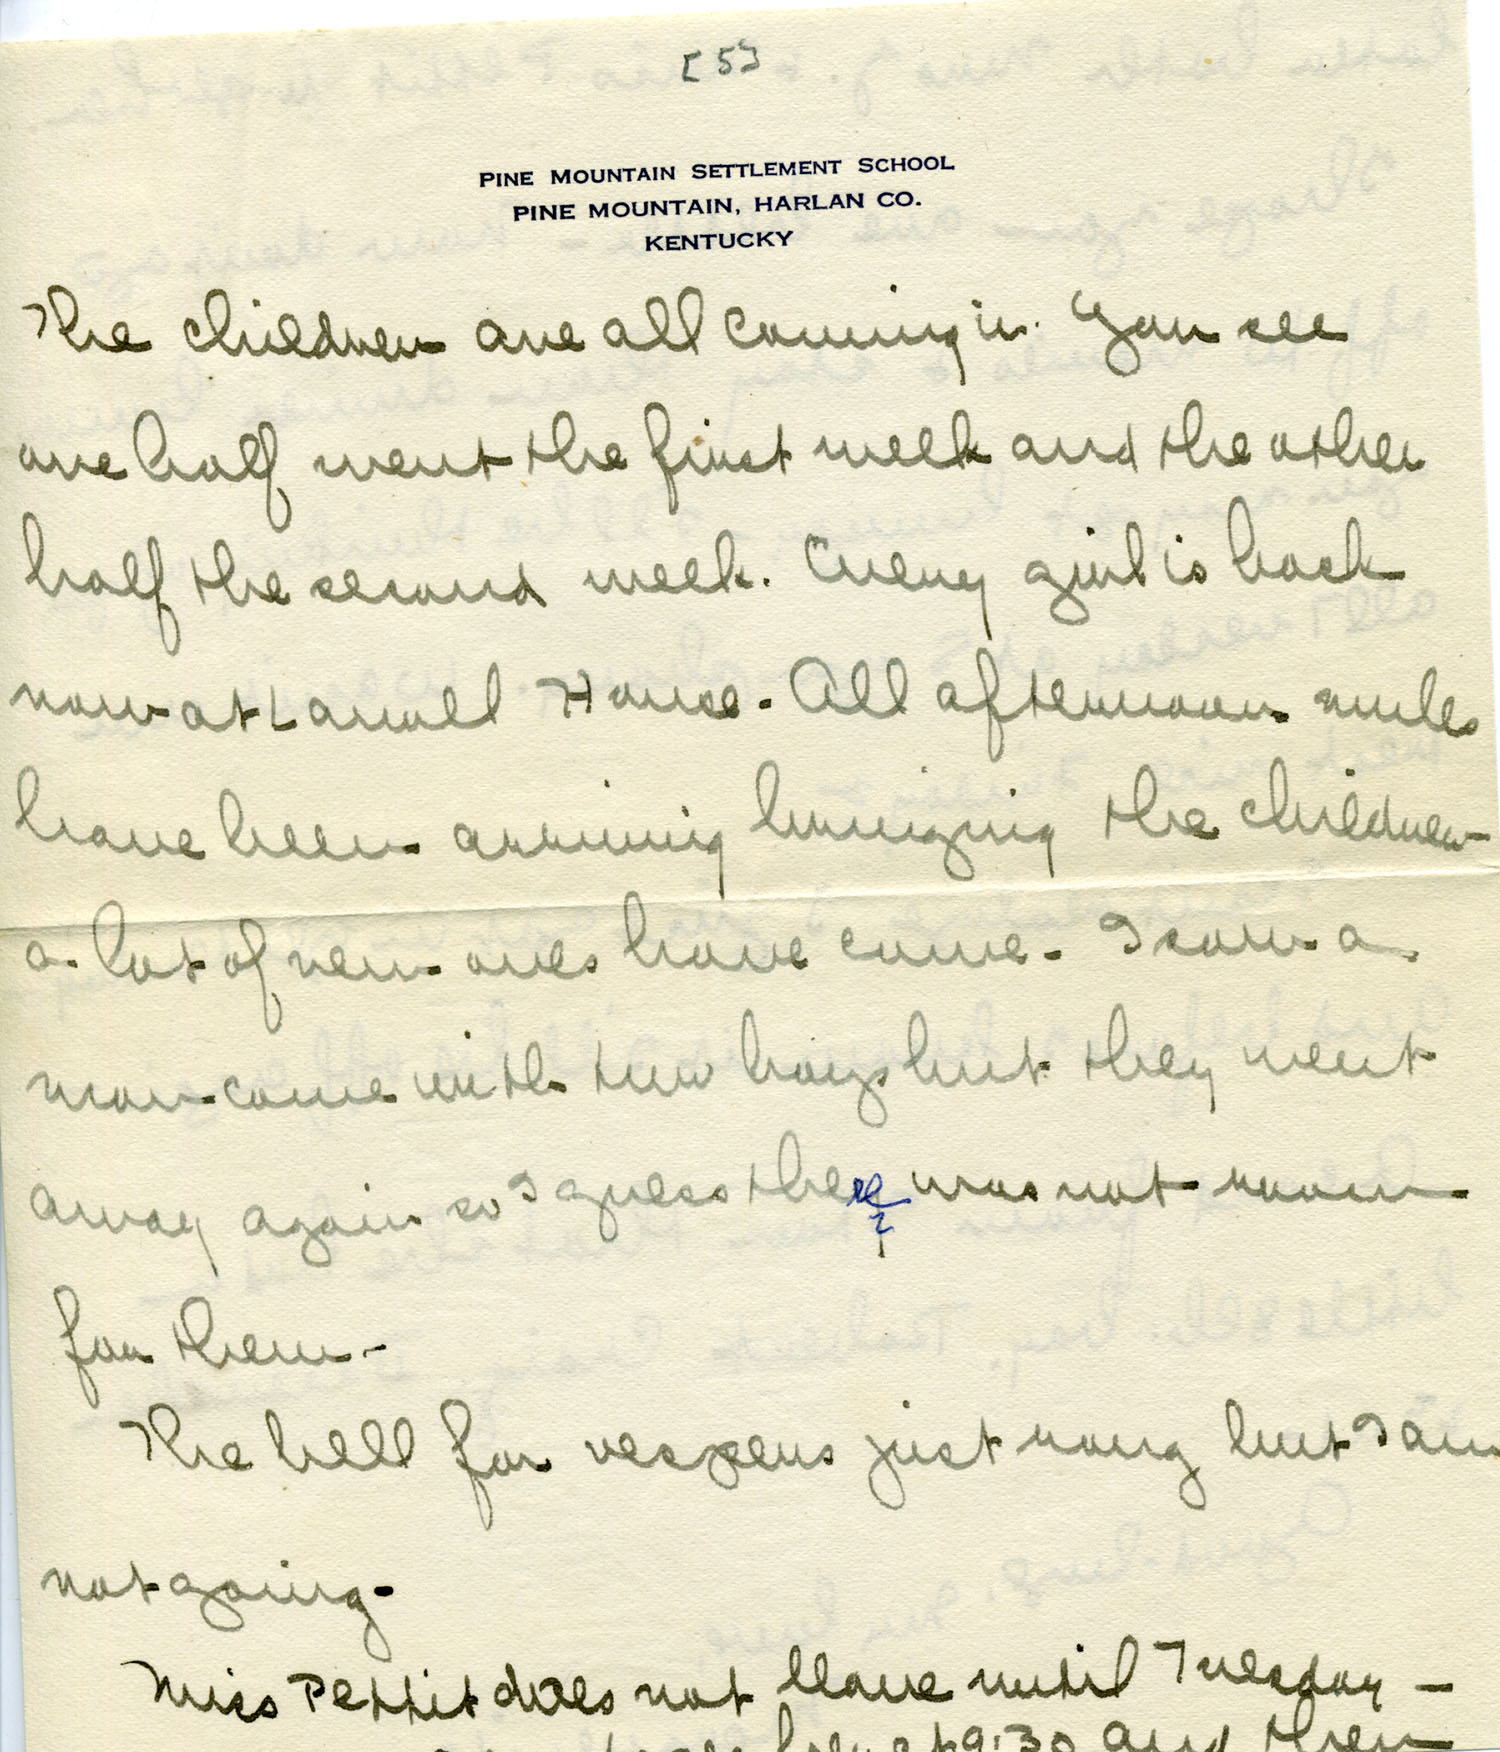 [5]
PINE MOUNTAIN SETTLEMENT SCHOOL
PINE MOUNTAIN, HARLAN CO.
KENTUCKY
The children are all coming in. You see
one half went the first week and the other
half the second week. Every girl is back
now at Laurell House. All afternoon mules
have been arriving bringing the children
a lot of new ones have come. I saw a
man come with two boys but they went
away again so I guess there was not room
for them -
The bell for vespers just rung but I am
not going.
Miss Pettit does not leave until Tuesday -
9:30 and then